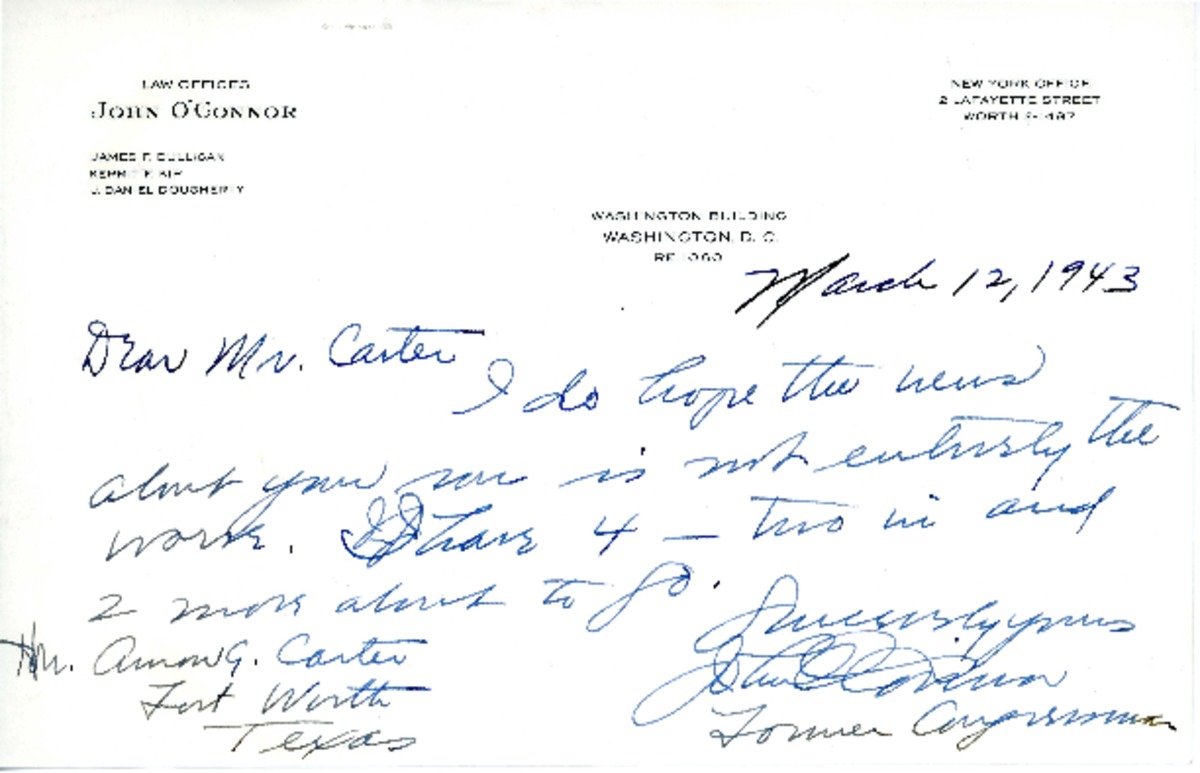 LAW OFFICES
JOHN O'CONNOR
JAMES F. CULLIGAN
KERMIT F. KIP
J. DANIEL DOUGHERTY
NEW YORK OFFICE
2 LAFAYETTE STREET
WORTH
WASHINGTON BUILDING
WASHINGTON, D. C.
March 12, 1943
Dear Mr. Carter
I do hope the news
about your son is not entirely the
worse. I have 4 — two in and
2 more about to go.
Sincerely yours
John O'Connor
Former Congressman
Hon. Amon G. Carter
Fort Worth
Texas